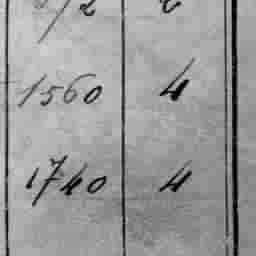 1560 4
1740 4